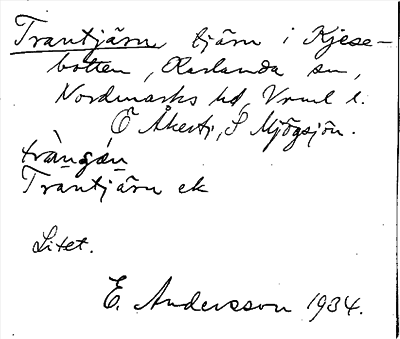 Trantjärn tjärn i Kjese-
botten, Karlanda sn,
Nordmarks hd, Vrml l.
Ö Åkerti, S Mjögsjön.
tràngǝn
Trantjärn ek
Litet.
E. Andersson 1934.